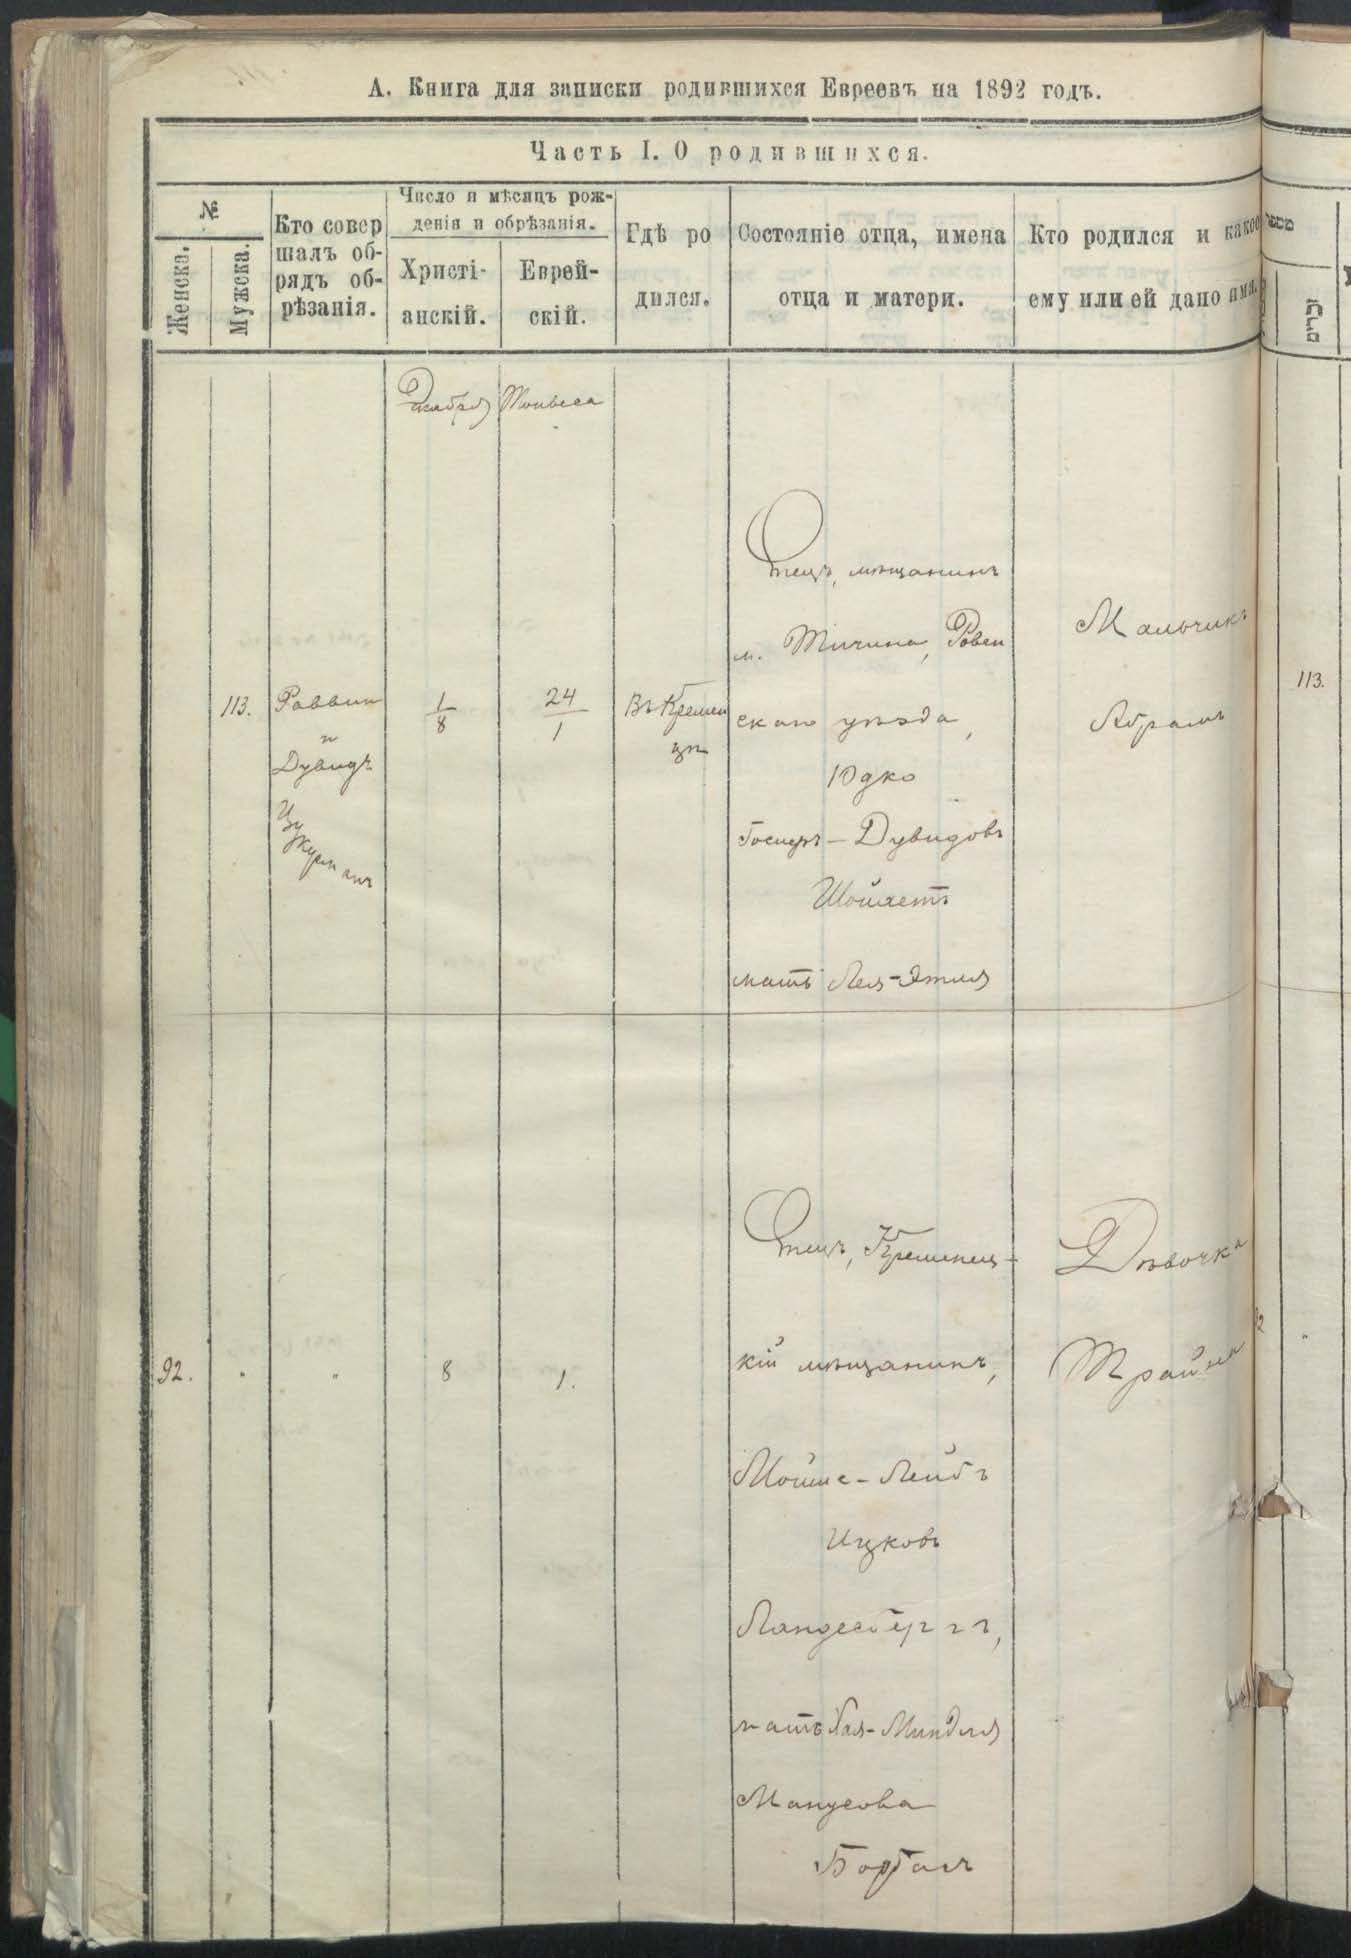 А. Книга для записки родившихся Евреевъ на 1892 годъ.
Часть I. О родившихся.
№
Женска.
Мужска.
Кто совер
шалъ об-
рядъ об-
рѣзанія.
Число и мѣсяцъ рож-
денія и обрѣзанія.
Христі-
анскій.
Еврей-
скій.
Гдѣ ро
дился.
Состояніе отца, имена
отца и матери.
Кто родился и какое
ему или ей дано имя.
Декабрь
113.
Раввин
и
Дувидъ
Цу
керманъ
1
8
24
1
Въ Кремен
цѣ
Отецъ, мѣщанинъ
м. Тучина, Ровен
скаго уѣзда,
Юдко
Дувидовъ
мать Лея-Этля
Мальчикъ
Абрамъ
113.
92.
"
"
8
1.
Отецъ, Кременец-
кій мѣщанинъ,
Мойше-Лейбъ
Ицковъ
Ландесбергъ,
мать Хая-Миндля
Манусова
Дѣвочка
Трайна
"